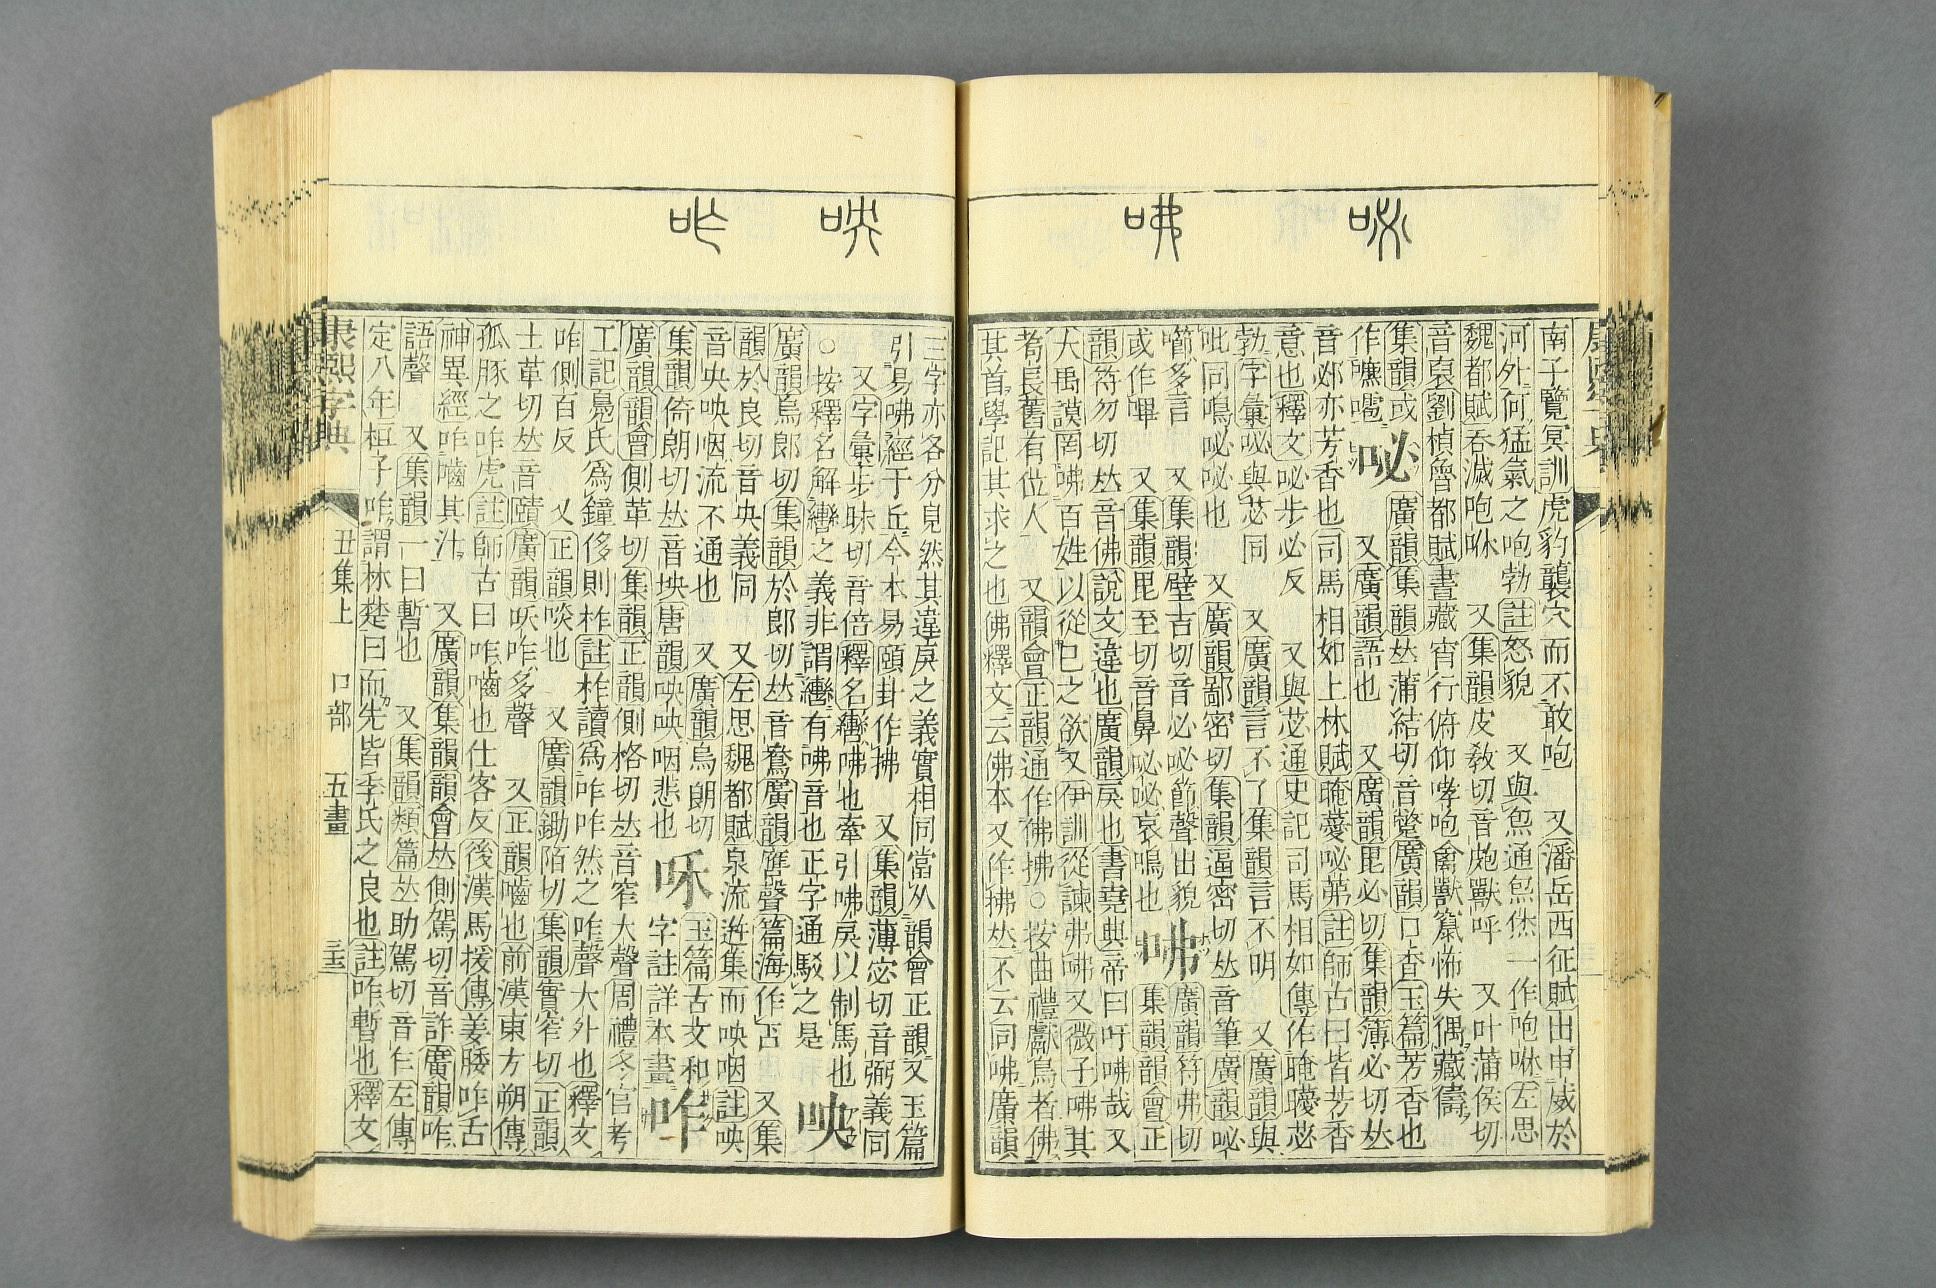 咇 咈
南子覽冥訓虎豹襲穴而不敢咆 又潘岳西征賦出申威於
河外何猛氣之咆勃註怒貌 又與炰通炰烋一作咆咻左思
魏都賦吞滅咆咻 又集韻皮敎切音皰獸呼 又叶蒲侯切
音裒劉楨魯都賦晝藏宵行俯仰哮咆禽獸竄怖失偶藏儔
集韻或作嚤嚗 咇 廣韻集韻𠀤蒲結切音蹩廣韻口香玉篇芳香也
又廣韻語也 又廣韻毘必切集韻薄必切𠀤
音邲亦芳香也司馬相如上林賦晻薆咇茀註師古曰皆芳香
意也釋文咇步必反 又與苾通史記司馬相如傳作晻曖苾
勃字彙咇與苾同 又廣韻言不了集韻言不明 又廣韻與
吡同鳴咇咇也 又廣韻鄙密切集韻逼密切𠀤音筆廣韻咇
啽多言 又集韻壁吉切音必咇節聲出貌 咈 廣韻符弗切
或作嗶 又集韻毘至切音鼻咇咇哀鳴也 集韻韻會正
韻符勿切𠀤音佛說文違也廣韻戾也書堯典帝曰吁咈哉又
大禹謨罔咈百姓以從己之欲又伊訓從諫弗咈又微子咈其
耇長舊有位人 又韻會正韻通作佛拂○按曲禮獻鳥者佛
其首學記其求之也佛釋文云佛本又作拂𠀤不云同咈廣韻
咉 咋
三字亦各分見然其違戾之義實相同當从韻會正韻又玉篇
引易咈經于丘今本易頤卦作拂 又集韻薄宓切音弼義同
又字彙步昧切音倍釋名轡咈也牽引咈戾以制馬也
○按釋名解轡之義非謂轡有咈音也正字通駁之是 咉
廣韻烏郎切集韻於郎切𠀤音鴦廣韻應聲篇海作㕰 又集
韻於良切音央義同 又左思魏都賦泉流迸集而咉咽註咉
音央咉咽流不通也 又廣韻烏朗切
集韻倚朗切𠀤音坱唐韻咉咉咽悲也 咊 玉篇古文和字註詳本畫 咋
廣韻韻會側革切集韻正韻側格切𠀤音窄大聲周禮冬官考
工記鳧氏爲鐘侈則柞註柞讀爲咋咋然之咋聲大外也釋文
咋側百反 又正韻啖也 又廣韻鋤陌切集韻實窄切正韻
士革切𠀤音賾廣韻咊咋多聲 又正韻嚙也前漢東方朔傳
孤豚之咋虎註師古曰咋嚙也仕客反後漢馬援傳姜腇咋舌
神異經咋嚙其汁 又廣韻集韻韻會𠀤側駕切音詐廣韻咋
語聲 又集韻一曰暫也 又集韻類篇𠀤助駕切音乍左傳
定八年桓子咋謂林楚曰而先皆季氏之良也註咋暫也釋文
康熙字典 丑集上 口部 五畫